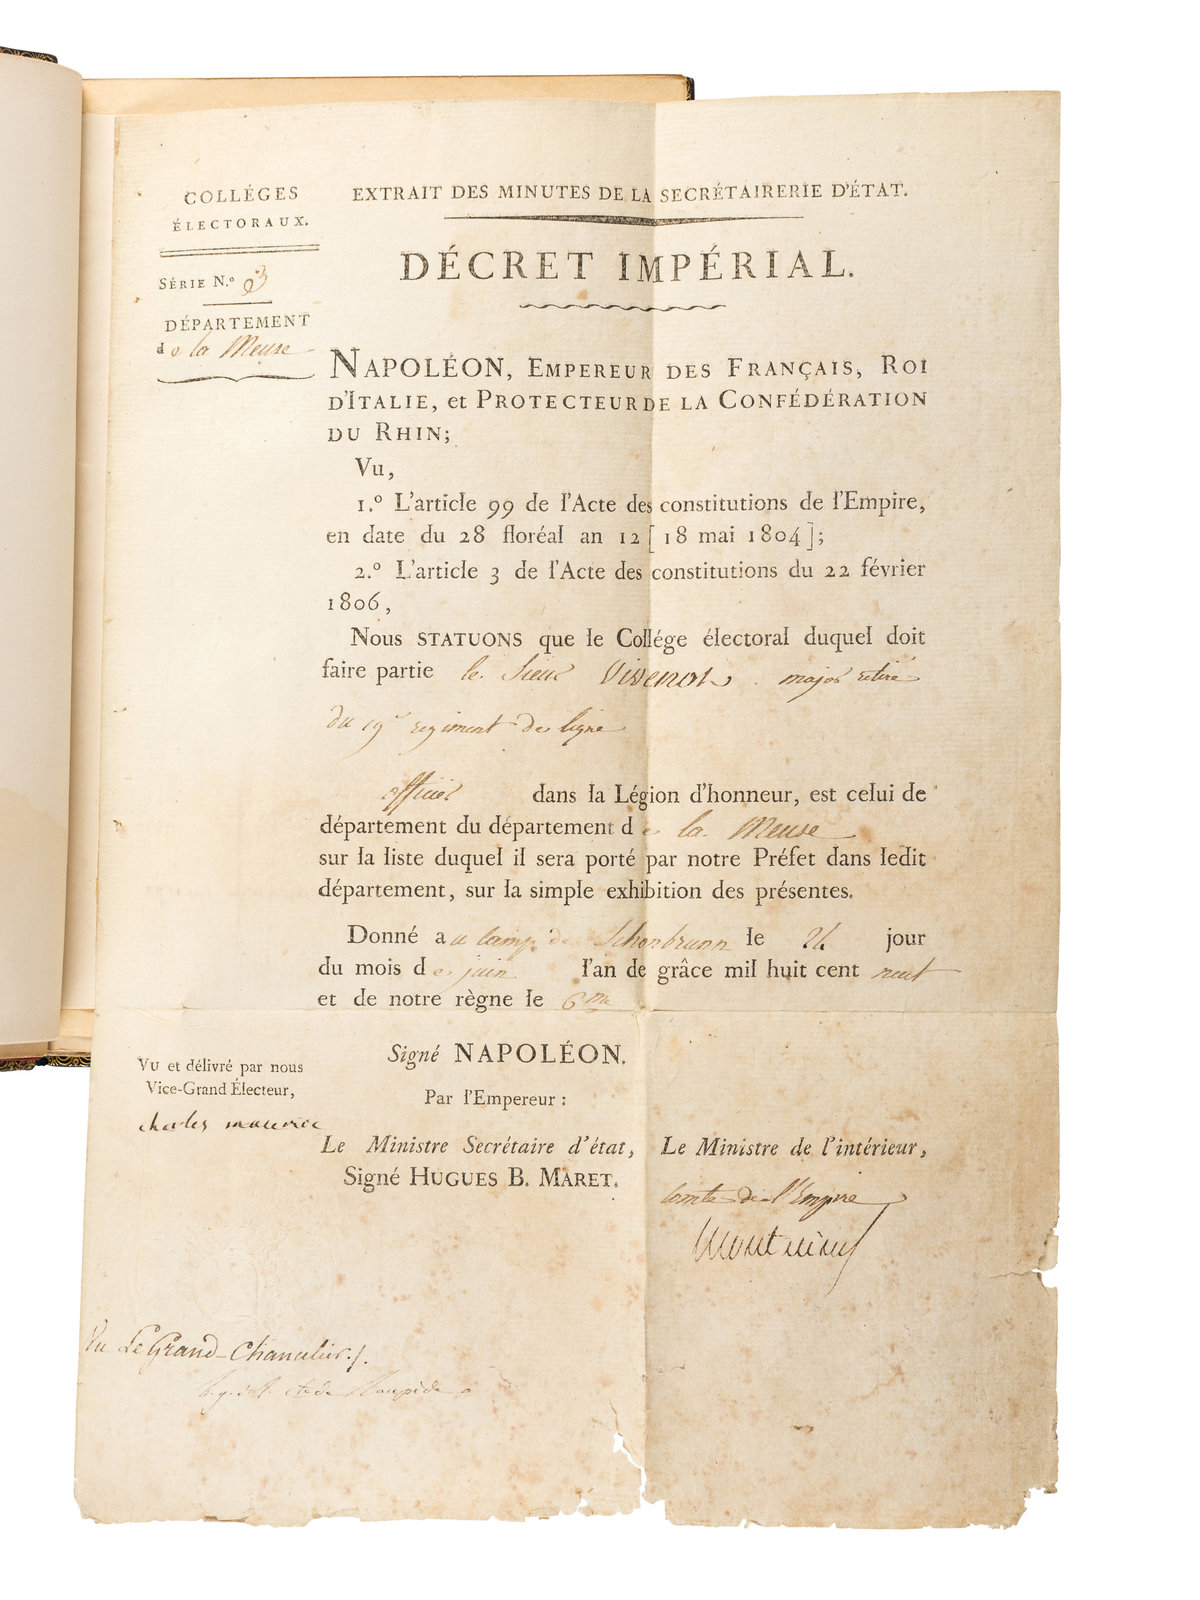 COLLÉGES
ÉLECTORAUX.
SÉRIE N.º 93
DÉPARTEMENT
de la Meuse
EXTRAIT DES MINUTES DE LA SECRÉTAIRERIE D'ÉTAT.
DÉCRET IMPÉRIAL.
NAPOLÉON, EMPEREUR DES FRANÇAIS, ROI
D'ITALIE, et PROTECTEUR DE LA CONFÉDÉRATION
DU RHIN;
Vu,
1.º L'article 99 de l'Acte des constitutions de l'Empire,
en date du 28 floréal an 12 [18 mai 1804];
2.º L'article 3 de l'Acte des constitutions du 22 février
1806,
Nous STATUONS que le Collége électoral duquel doit
faire partie le Sieur Vivenot major retiré
du 19e regiment de ligne
officier dans la Légion d'honneur, est celui de
département du département de la Meuse
sur la liste duquel il sera porté par notre Préfet dans ledit
département, sur la simple exhibition des présentes.
Donné au camp de Schonbrunn le 24 jour
du mois de juin l'an de grâce mil huit cent neuf
et de notre règne le 6me
Signé NAPOLÉON.
Vu et délivré par nous
Vice-Grand Électeur,
charles maurice
Par l'Empereur :
Le Ministre Secrétaire d'état,
Signé HUGUES B. MARET.
Le Ministre de l'intérieur,
Comte de l'Empire
Vu Le Grand-Chancelier